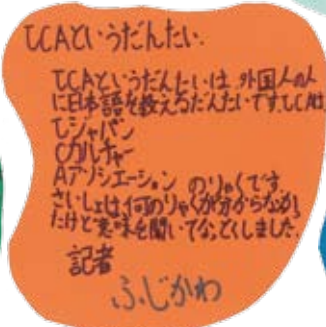 てCAというだんたい.
てCAというだんたいは、外国人の人
に日本語を教えるだんたいです。てCAは
てジャパン
Cカルチャー
Aアソシエーション のりゃくです。
さいしょは何のりゃくが分からなかっ
たけど意味を聞いてなっとくしました。
記者
ふじかわ